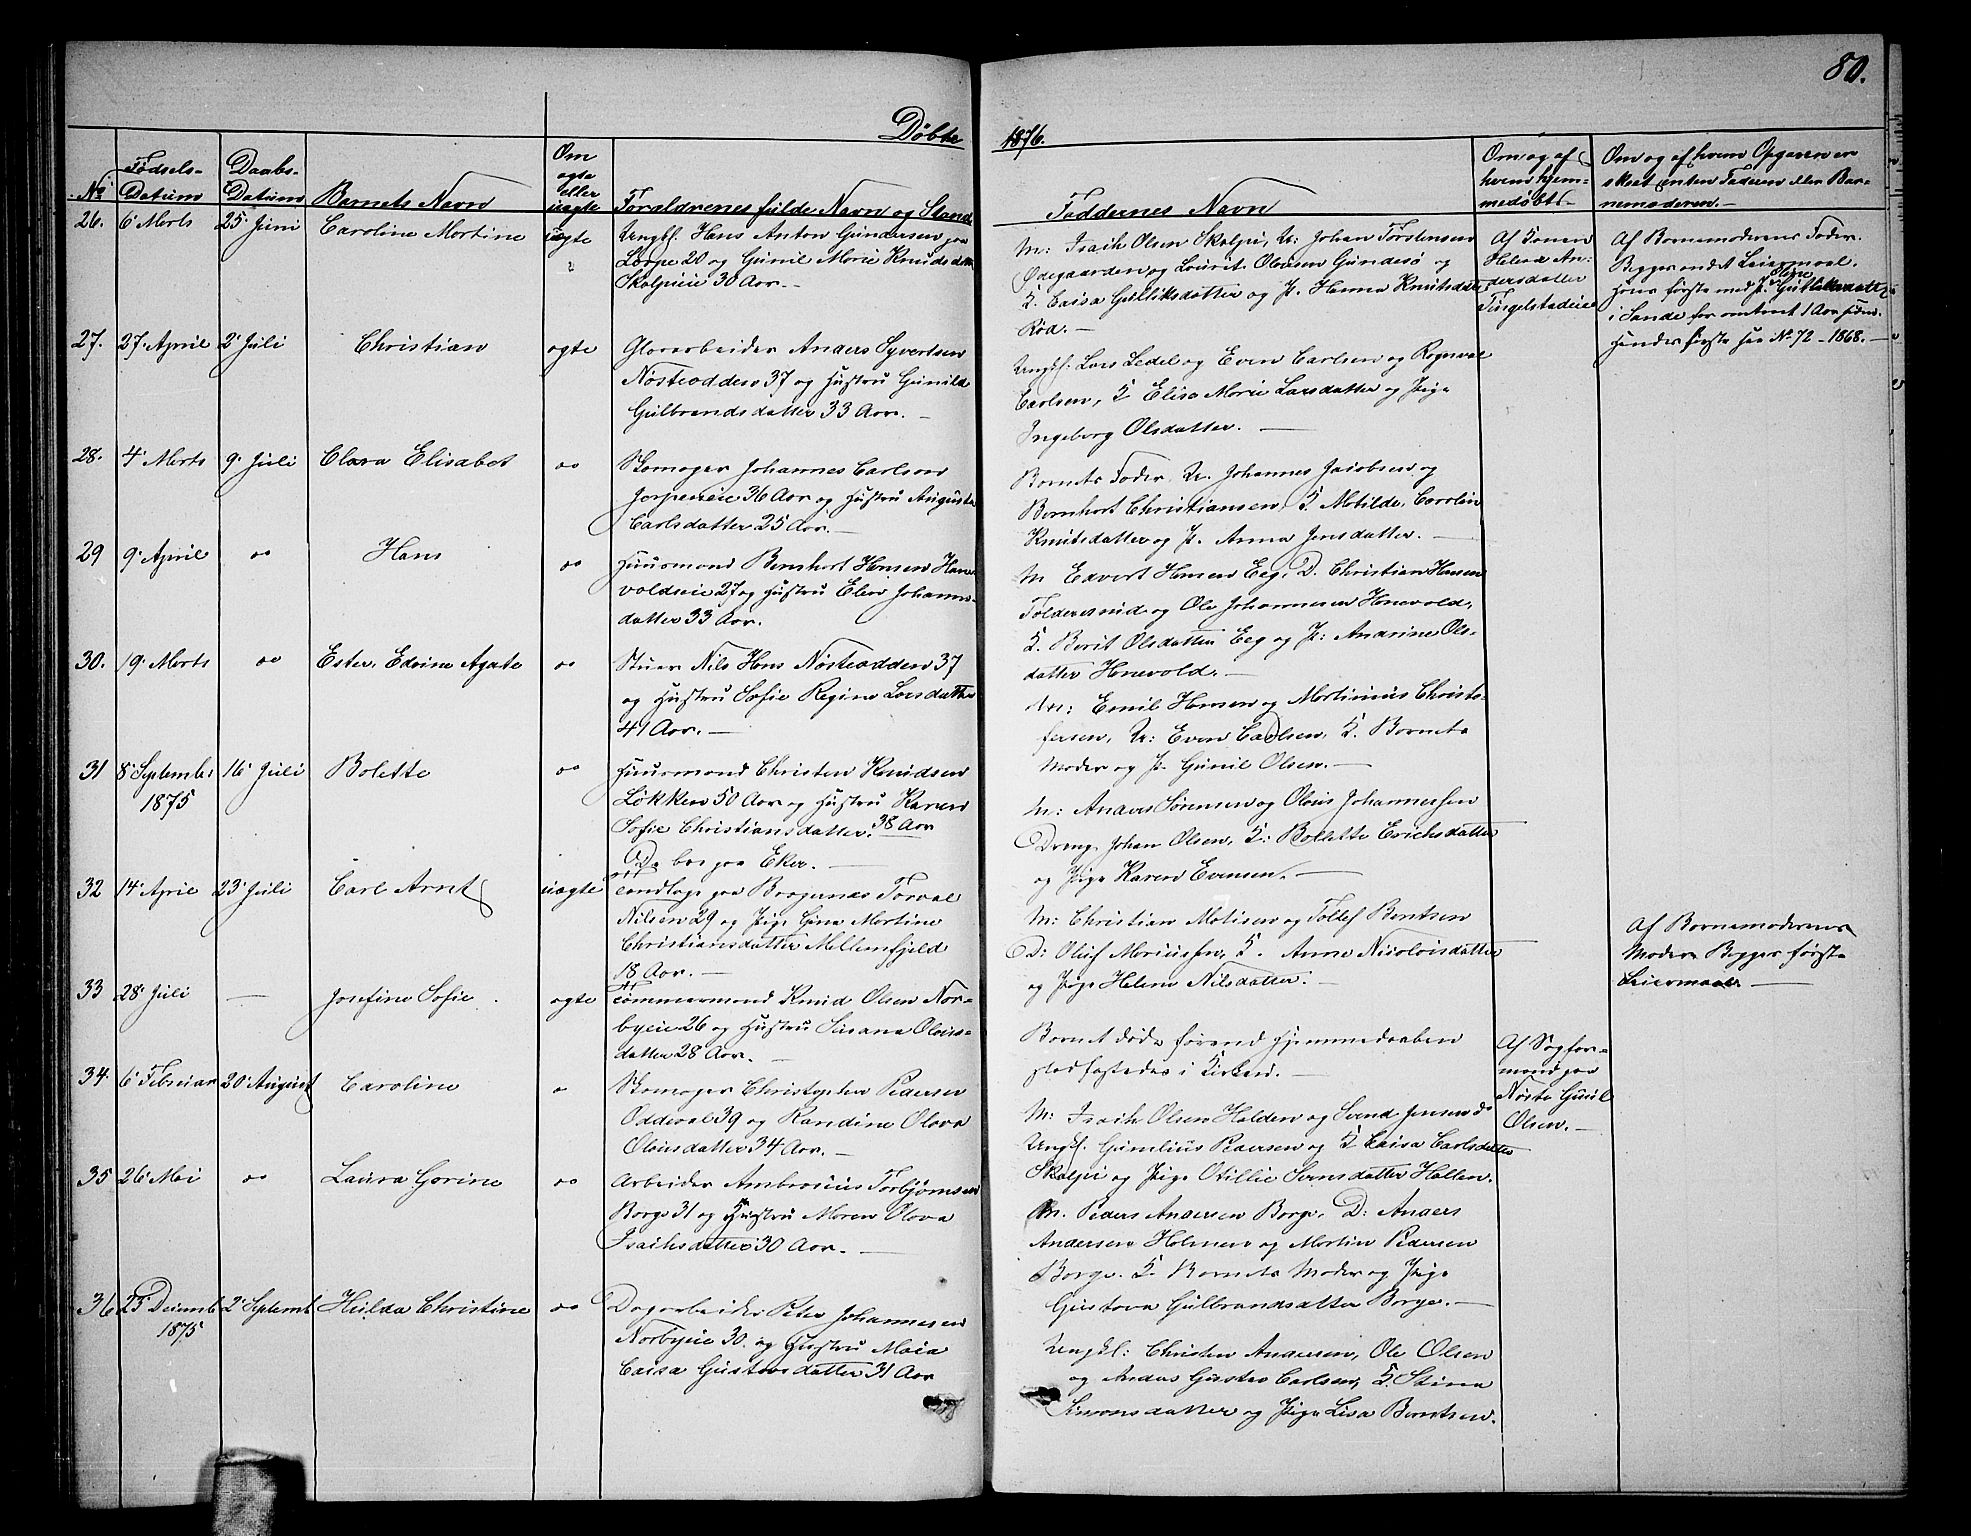 80.
Døbte 1876.
No
Fødsels-Datum
Daabs-Datum
Barnets Navn
Om ægte eller uægte
Forældrenes fulde Navn og Stand
Faddernes Navn
Om og af hvem hjemmedøbt
Om og af hvem Opgaven er skeet enten Faderen eller Barnemoderen.
26. 6 Marts 25 Juni Caroline Martine uægte
Ungkl. Hans Anton Gundersen paa
20 og Gunil Marie Knudsdatter
30 Aar.
M: Isaik Olsen Skalpi, U: Johan Torstensen
Ødegaarden og Olaves Gundesø og
K. Caisa Gulliksdatter og P. Hanna Knutsdatter
Rød.
Af Konen
Helene An-
dersdatter
Tingelstadeie
Af Barnemoderens Fader.
Begges andet Leiermaal.
hans første med P. Oline Gulliksdatter
i Sande for omtrent 1 Aar siden.
hendes første see No 72 - 1868.
27. 27 April 2 Juli Christian ægte
Glasarbeider Anders Syvertsen
Nøsteodden 37 og Hustru Gunild
Gulbrandsdatter 33 Aar.
Ungkl: Lars Ledel og Even Carlsen og Rognval
Carlsen, K Elise Marie Larsdatter og Pige
Ingeborg Olsdatter.
28. 4 Marts 9 Juli Clara Elisabet do
Skomager Johannes Carlson
36 Aar og Hustru Augusta
Carlsdatter 25 Aar.
Barnets Fader, U. Johannes Jacobsen og
Bernhart Christiansen, K. Matilde, Carolin
Knutsdatter og P. Anna Jensdatter.
29 9 April do Hans do
Huusmand Bernhart Hansen Hane-
voldeie 27 og Hustru Elen Johannes-
datter 33 Aar.
M Edvart Hansen Eeg, D. Christian Hansen
og Ole Johannesen Hanevold,
K. Berit Olsdatter Eeg og P: Andrine Ols-
datter Hanevold.
30. 19 Marts do Ester, Edvine Agate do
Stuer Nils Hans Nøsteodden 37
og Hustru Sofie Regine Larsdatter
41 Aar.
M: Emil Hansen og Martinius Christo-
fersen, U: Even Carlsen, K. Barnets
Moder og P. Gunil Olsen.
31 8 September 1875 16 Juli Bolette do
Huusmand Christen Knudsen
Løkken 50 Aar og Hustru Karen
Sofie Christiansdatter 38 Aar
De boe paa Eker.
M: Anders Sørensen og Olous Johannessen
Dreng Johan Olsen, K: Bolette Erichsdatter
og Pige Karen Evensen.
32 14 April 23 Juli Carl Arnt uægte
paa Bragernæs Torval
Nilsen 29 og Pige Gina Martine
Christiansdatter Mellemfjeld
18 Aar.
M: Christian Matisen og Tollef Berntsen
D: Oluf Mariussen, K. Anne Nicolaisdatter
og Pige Helene Nilsdatter.
Af Barnemoderens
Moder Begges første
Leiermaal.
33 28 Juli — Josefine Sofie ægte
Tømmermand Knud Olsen Nor-
byeie 26 og Hustru Susana Olous-
datter 28 Aar.
Barnet døde førend Hjemmedaaben
stadfæstedes i Kirken.
Af Sagfor-
mand paa
Nøste Gunil
Olsen.
34. 6 Februar 20 August Caroline do
Skomager Christopher Pedersen
Oddeval 39 og Randine Olava
Olousdatter 34 Aar.
M: Isaik Olsen Halden og Svend Jensen do
Ungkl. Gunelius Pedersen og K Caisa Carlsdatter
Skalpi og Pige Otillie Svensdatter Hallen.
35 26 Mai do Laura Gorine do
Arbeider Ambrosius Torbjørnsen
Borge 31 og Hustru Maren Olava
Isaiksdatter 30 Aar.
M. Peder Andersen Borge, D: Anders
Andersen Holmen og Martin Pedersen
Borge. K. Barnets Moder og Pige
Gustava Gulbrandsdatter Borge.
36 23 Decemb 1875 2 Septemb Hulda Christine do
Dagarbeider Peter Johannesen
Norbyeie 30. og Hustru Maia
Caisa Gustavsdatter 31 Aar
Ungkl: Christen Andersen, Ole Olsen
og Anders Gustav Carlsen, K. Stina
Simonsdatter og Pige Lisa Berntsen.